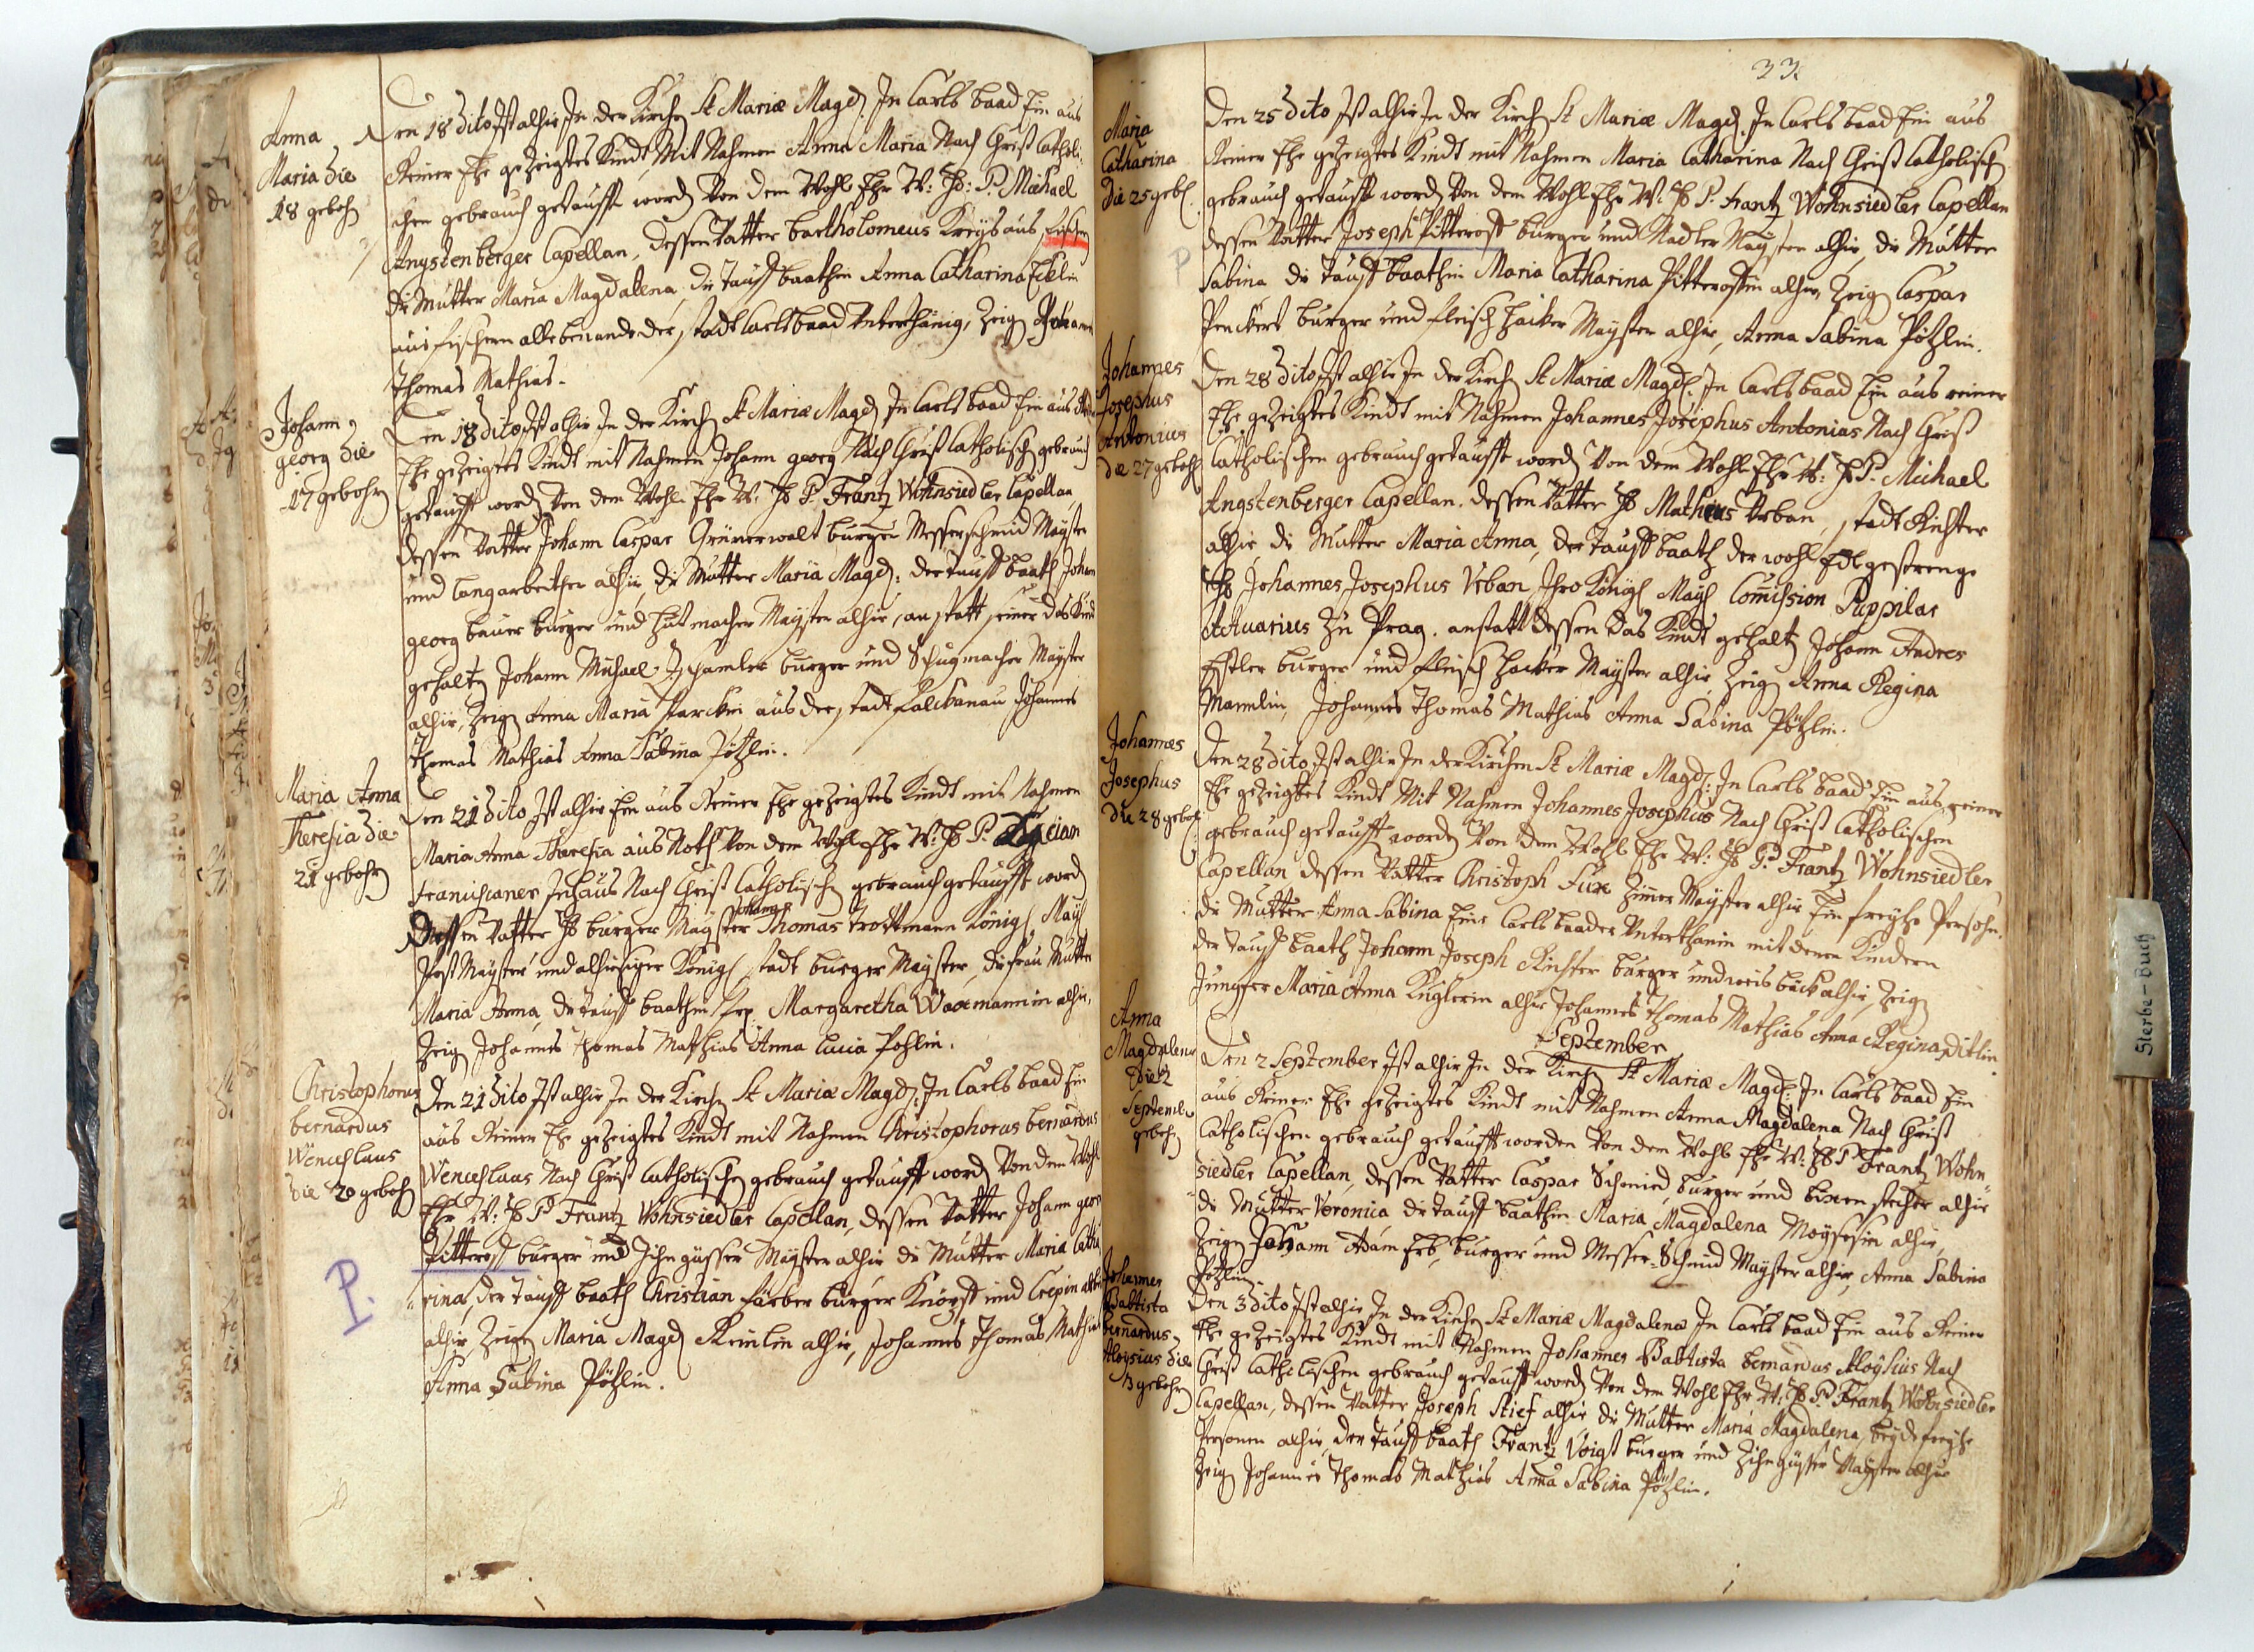 Anna
Maria die
18 gebohr
Den 18 dito Ist alhir In der Kirch St Mariæ Magd. In Carls baad Ein aus
Reiner Ehe gezeigtes Kindt Mit Nahmen Anna Maria Nach Christ Catholi
chen gebrauch getaufft word Von dem Wohl Ehr W: H: P: Michael
Angstenberger Capellan, dessen Vatter bartholomeus Kreys aus fischen
die Mutter Maria Magdalena die Tauff baathin Anna Catharina Ecklin
aus fischern alle benande der Stadt Carlsbaad Unterthänig, Zeig Johann
Thomas Mathias.
Johann
georg die
17 gebohr
Den 18 dito Ist alhir In der Kirch St Mariæ Magd In Carls baad Ein aus
Ehe gezeigtes Kindt mit Nahmen Johann georg Nach Christ Catholisch gebrauch
getaufft word Von dem Wohl Ehr W: H P. Frantz Wohnsiedler Capellan,
dessen Vatter Johann Caspar Grünerwalt burger Messerschmid Mayster
und langarbeither alhir, die Mutter Maria Magd: der Tauff baath Johann
georg bauer burger und Hutmacher Mayster alhir, an statt seiner das Kindt
gehalt Johann Michael burger und Schugmacher Mayster
alhir, Zeig Anna Maria aus der stadt falckhanau Johannes
Thomas Mathias Anna Sabina Pötzlin.
Maria Anna
Theresia die
21 gebohr
Den 21 dito Ist alhir Ein aus Reiner Ehe gezeigtes Kindt mit Nahmen
Maria Anna Theresia aus Noth Von dem Wohl Ehr W: H P.
franciscaner Nach Christ Catholisch gebrauch getaufft word
Johann
Dessen Vatter H burger Mayster Thomas Trottmann Königl May
Post Mayster und alhisiger Königl stadt burger Mayster, die frau Mutter
Maria Anna, die tauff baathin Margaretha Waxmannin alhir,
Zeig Johannes Thomas Mathias Anna Lucia Pohlin.
Christophorus
bernardus
Wenceslaus
die 20 geboh
Den 21 dito Ist alhir In der Kirch St Mariæ Magd: In Carls baad Ein
aus Reiner Ehe gezeigtes Kindt mit Nahmen Christophorus bernardus
Wenceslaus Nach Christ Catholisch gebrauch getaufft word Von dem Wohl
Ehr W: H P Frantz Wohnsiedler Capellan, dessen Vatter Johann georg
Pitteroff burger und Zihn güsser Mayster alhir die Mutter Maria Catha
P.
rina, der Tauff baath Christian färber burger Knöpff und Crepin
alhir, Zeigen Maria Magd Reinlin alhir, Johannes Thomas Mathias
Anna Sabina Pötzlin.
33
Maria
Catharina
die 25 gebl.
Den 25 dito Ist alhir In der Kirch St Mariæ Magd. In Carls baad Ein aus
Reiner Ehe gezeigtes Kindt mit Nahmen Maria Catharina Nach Christ Catholisch
gebrauch getaufft word Von dem Wohl Ehr W: H P. Frantz Wohnsiedler Capellan
dessen Vatter Joseph Pitteroff burger und Nadler Mayster alhir, die Mutter
P
Sabina die Tauff baathin Maria Catharina Pitteroffin alhir, Zeig Caspar
burger und fleisch hacker Mayster alhir, Anna Sabina Pötzlin.
Johannes
Josephus
Antonius
die 27 geboh
Den 28 dito Ist alhir In der Kirch St Mariæ Magd: In Carls baad Ein aus reiner
Ehe gezeigtes Kindt mit Nahmen Johannes Josephus Antonius Nach Christ
Catholischen gebrauch getaufft word Von dem Wohl Ehr W: H P. Michael
Angstenberger Capellan. dessen Vatter H Matheus Urban, stadt Richter
alhir die Mutter Maria Anna, der tauff baath der wohl Edlgestrenge
H Johannes Josephus Urban, Ihro Königl Mayl Comission Puppilar
Actuarius zu Prag. anstatt dessen das Kindt gehalt Johann Andres
burger und fleisch hacker Mayster alhir, Zeig Anna Regina
Mannlin, Johannes Thomas Mathias Anna Sabina Pötzlin.
Johannes
Josephus
die 28 geboh
Den 28 dito Ist alhir In der Kirchen St Mariæ Magd: In Carls baad Ein aus reiner
Ehe gezeigtes Kindt Mit Nahmen Johannes Josephus Nach Christ Catholischen
gebrauch getaufft worden Von dem Wohl Ehr W: H P. Frantz Wohnsiedler
Capellan dessen Vatter Christoph Fux Zimer Mayster alhir Ein freyhe Persohn.
die Mutter Anna Sabina Eine Carls baader Unterthanin mit denen Kindern
der Tauff baath Johann Joseph Richter burger und weis bäck alhir, Zeig
Jungfer Maria Anna Kuglerin alhir Johannes Thomas Mathias Anna Regina Ditlin.
September
Anna
Magdalena
die 2
Septemb:
geboh
Den 2 September Ist alhir In der Kirch St Mariæ Magd: In Carls baad Ein
aus Reiner Ehe gezeigtes Kindt mit Nahmen Anna Magdalena Nach Christ
Catholischen gebrauch getaufft worden Von dem Wohl Ehr W: H P Frantz Wohn
siedler Capellan, dessen Vatter Caspar Schmied, burger und bixen stechter alhir
die Mutter Veronica die tauff baathin Maria Magdalena Moysesin alhir,
Zeigen Johann Adam Erb, burger und Messer-Schmid Mayster alhir, Anna Sabina
Pötzlin.
Johannes
Babtista
bernardus
Aloysius die
3 gebohr
Den 3 dito Ist alhir In der Kirch St Mariæ Magdalenæ In Carls baad Ein aus Reiner
Ehe gezeigtes Kindt mit Nahmen Johannes Babtista bernardus Aloysius Nach
Christ Catholischen gebrauch getaufft word Von dem Wohl Ehr W: H P. Frantz Wohnsiedler
Capellan, dessen Vatter Joseph Stief alhir die Mutter Maria Magdalena, beyde freyhe
Personen alhir, der Tauff baath Frantz Voigt burger und Zihn güsser Mayster alhir
Zeig Johannes Thomas Mathias Anna Sabina Pötzlin.
Sterbe-Buch